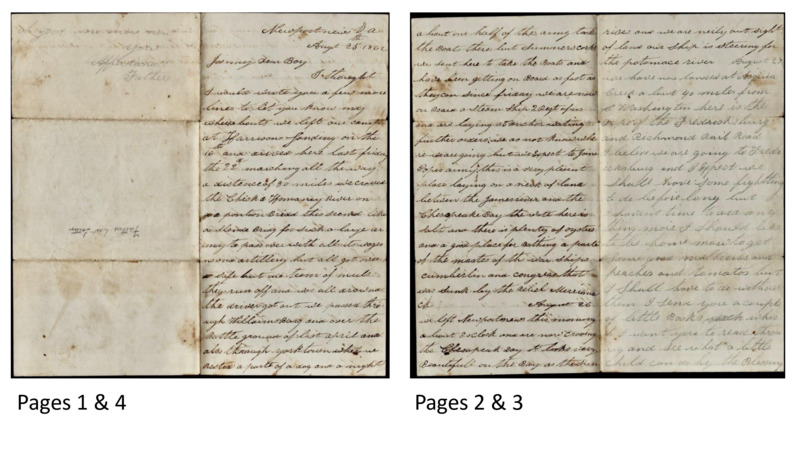 Affectionate
Father
Newportnews Va
Augt 25th 1862
Johnny Dear Boy
I thought
I would write you a few more
lines to let you know my
whereabouts we left our camp
at Harrisons Landing on the
16th and arived here last friday
the 22d marching all the way
a distance of 70 miles we crossed
the River on
a
for such a large ar
my to pass over with all its wagg
ons and artillery but all got over
safe but
they run off and
the driver got out we passed thro
ugh Williamsburg and over the
battle ground of last april and
also through yorktown where we
rested a parte of a day and a night
about one half of the army took
the Boat there but
we sent here to take the Boat and
have been getting on Board as fast as
they can since friday we are now
on Board a steem ship
and are laying at anchor waiting
further orders we do not know whe
re we are going but we Expect to Join
Popes army this is a very plesent
place laying on a neck of land
between the James river and the
Chesapeake Bay the water here is
salt and there is plenty of oysters
and a good place for bathing a parte
of the masts of the war ships
cumberlan and congress that
was sunk by the rebel Merrimac
August 26
we left Newportnews this morning
about 2 oclock and are now Crossing
the Chesapeak Bay it looks very
Beautifull on the Bay as the sun
rises and we are neily out sight
of land our ship is steering for
the potomac river August 27
we have now landed at Acquia
Creek about 40 miles from
Washington here is the
of the Fredricksburg
and Richmond Rail Road
I beleive we are going to Fred
icksburg and I Expect we
shall have some fighting
to do before long but
I havent time to say any
thing more I should like
to be home now to get
some good milk and
peaches and tomatos but
I shall have to do without
them I send you a couple
of little Books
I want you to read throu
and see what a little
child can do by the Blessing
Pages 1 & 4
Pages 2 & 3